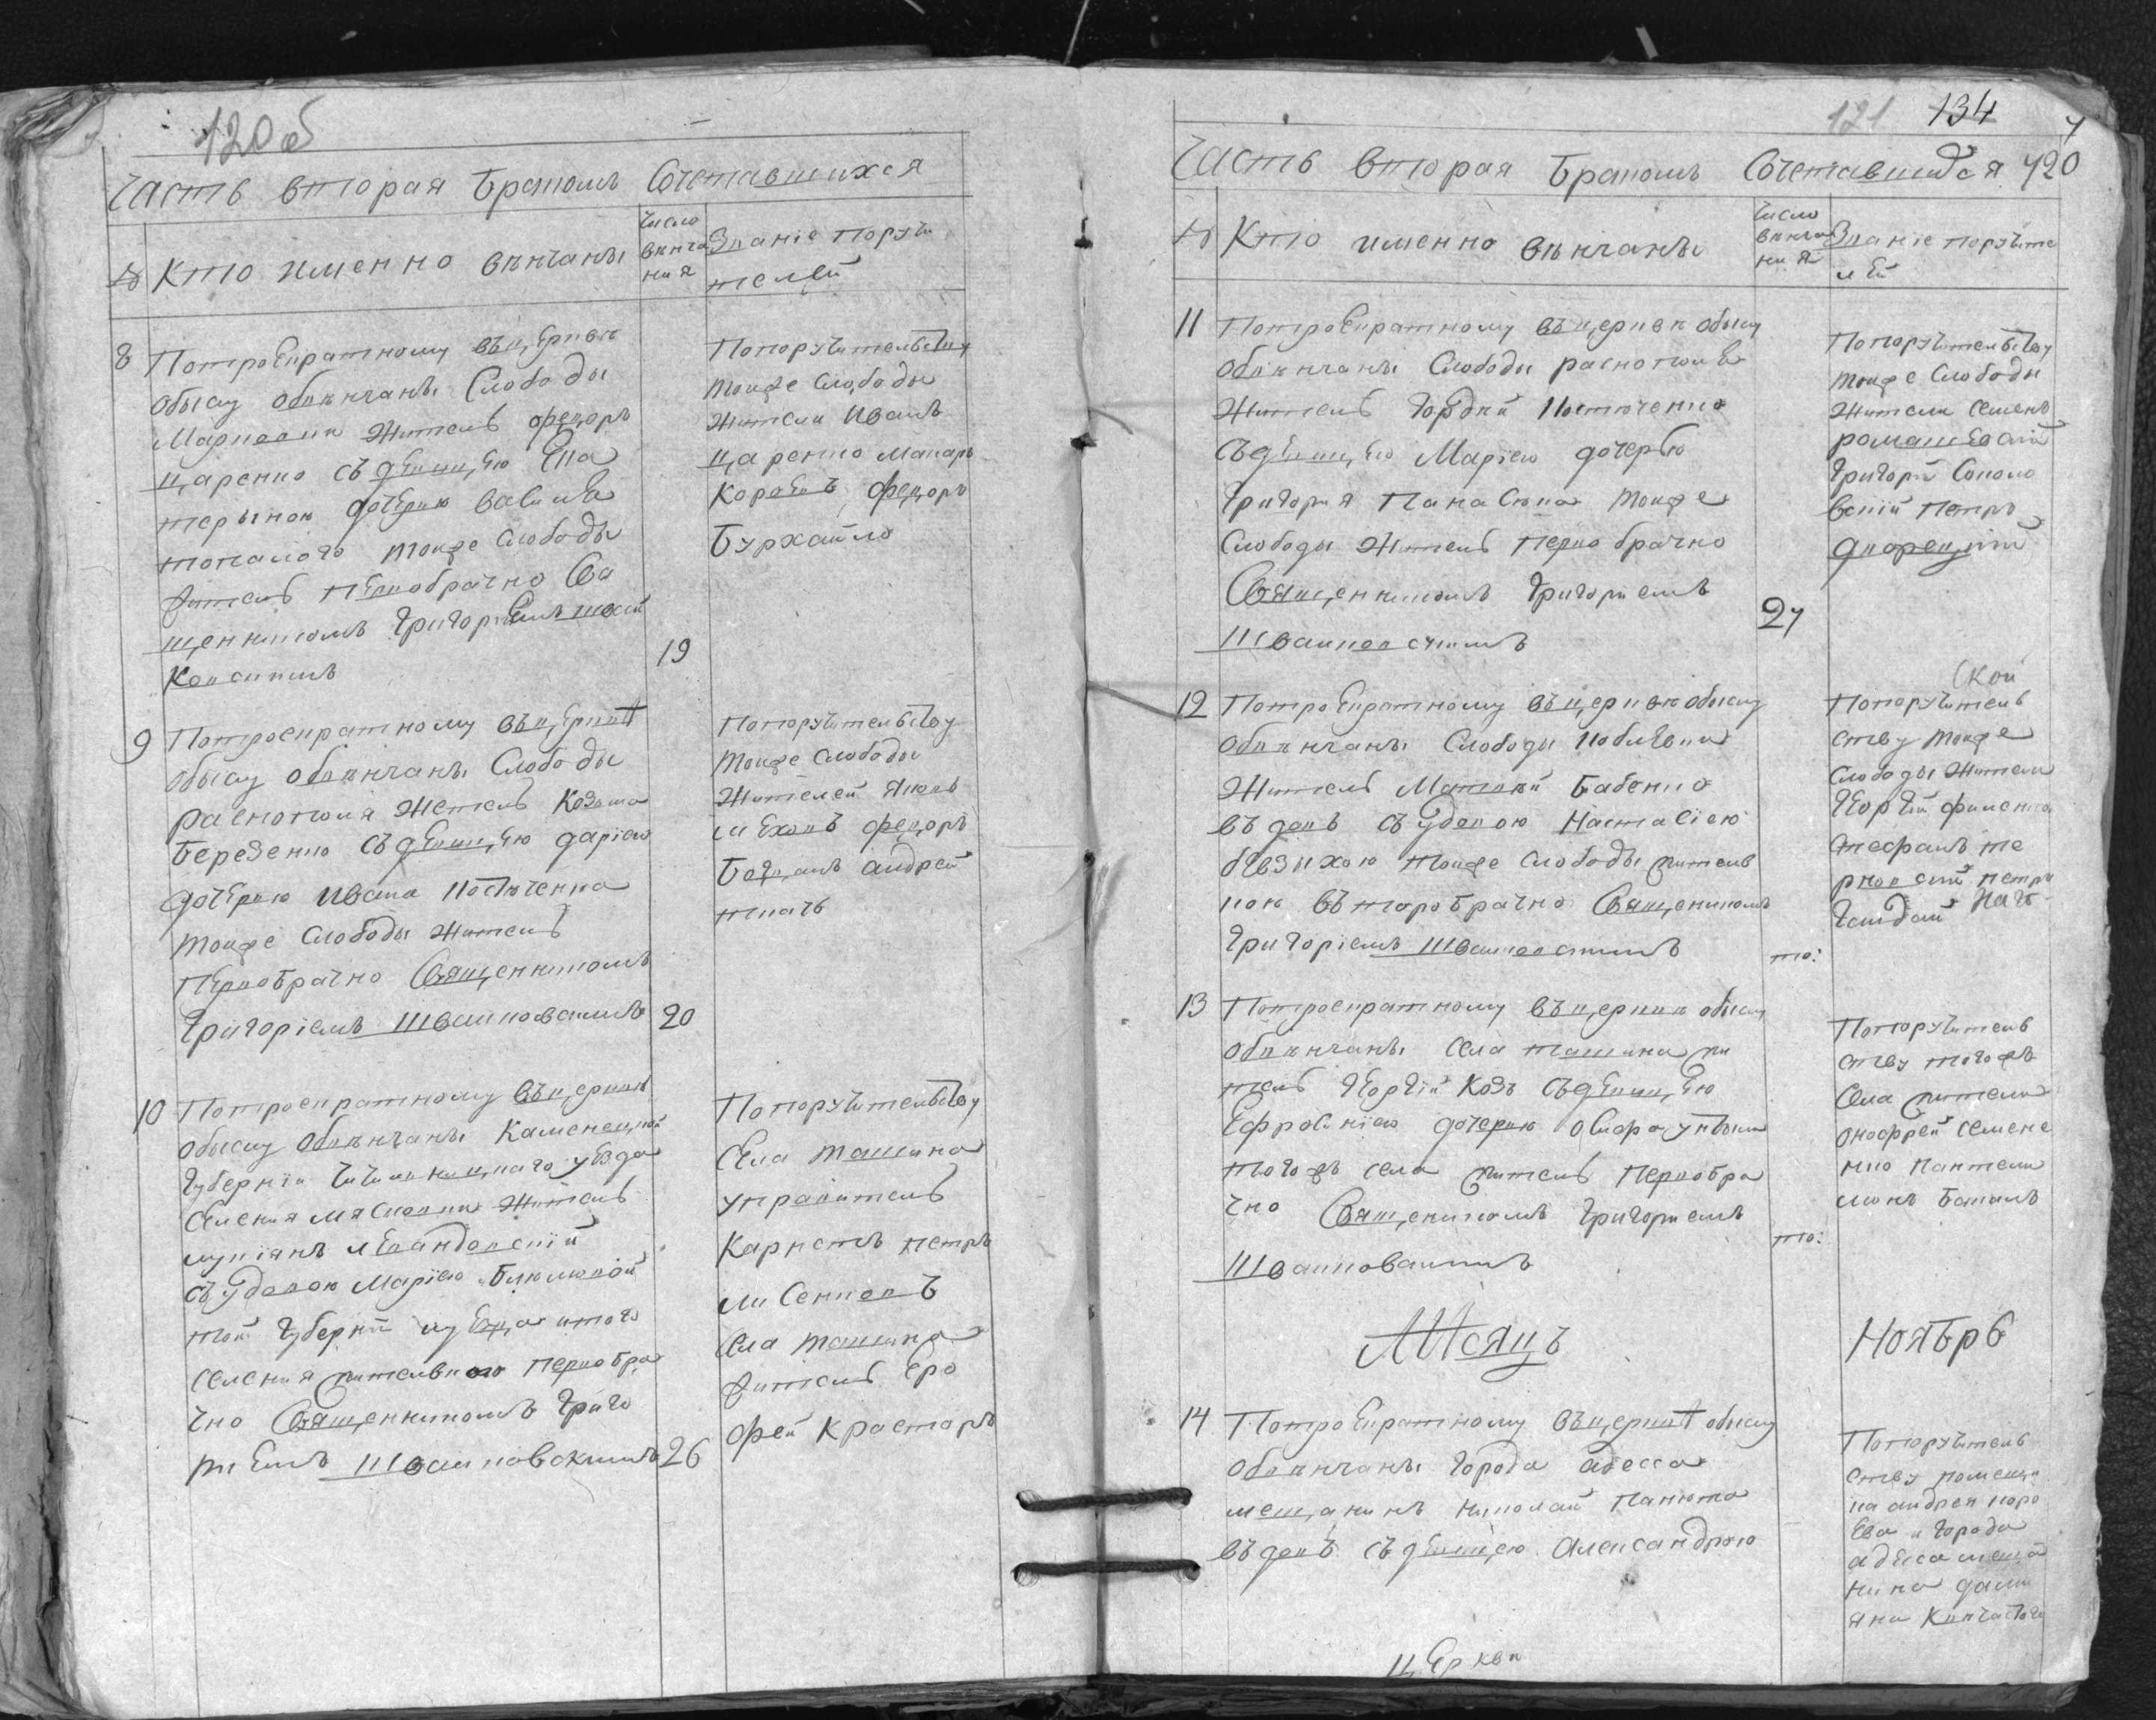 120 об
Часть вторая Бракомъ Сочетавшихся
№ Кто именно вѣнчаны
Число вѣнча ния
Званіе поручи телей
8 Потроекратному въцеркви
обыску обвѣнчаны Слободы
Марковки житель федоръ
царенко съдевицею Ека
териною дочерию василев
топалого тоижѣ Слободы
жителъ первобрачно Свя
щенникомъ Григориемъ швай
ковскимъ
19
Попоручителству
тоиже Слободы
жители Иванъ
царенко Макаръ
Коровъ федоръ
Бурхайло
9 Потроекратному въцеркви
обыску обвѣнчаны Слободы
раснополя жетель Козьма
Березенко съдевицею дариею
дочерию Ивана Костюченка
тоиже Слободы житель
первобрачно Священникомъ
Григоріемъ швайковскимъ
20
Попоручителству
тоиже Слободы
жителей Яковъ
леховъ федоръ
Боднаръ андрей
ткачъ
10 Потроекратному въцеркви
обыску обвѣнчаны Каменецкой
губерніи уезда
Селения Мясковки житель
лукіянъ левандовскій
съудовою Мариею
той губерніи иуезда итого
селения жителькою первобра
чно Священникомъ Григо
риемъ швайковскимъ
26
Попоручителству
Села ташина
управитель
Карпетъ петръ
лисенковъ
села ташина
житель Еро
фей красторъ
121 134
420
Часть вторая Бракомъ Сочетавшихся
№ Кто именно вѣнчаны
Число вѣнча ния
Званіе поручите лей
11 Потроекратному въцеркви обыску
обвѣнчаны Слободы раснополя
житель Гордѣй Костюченко
съдевицею Мариею дочерью
Григория Панасюка тоиже
Слободы житель первобрачно
Священникомъ Григориемъ
швайковскимъ
27
Попоручителству
тоиже Слободы
жители семенъ
ромашевскій
Григорій Соколо
вскій петръ
дворецкий
12 Потроекратному въцеркви обыску
обвѣнчаны Слободы
житель Матвѣй Бабенко
въдовъ съудовою Настасіею
тоиже слободы житель
кою въторобрачно Священикомъ
Григоріемъ швайковскимъ
то:
Попоручитель
ству тоиже
Слободы жители
Георгій
стефанъ те
рновскій петръ
Гайдай
13 Потроекратному въцеркви обыску
обвѣнчаны села ташина жи
тель Георгій Козъ съдевицею
Ефросиниею дочерию
тогожъ села житель первобра
чно Священикомъ Григориемъ
швайковскимъ
то:
Попоручитель
ству тогожъ
села жители
онофрей семене
нко пантели
монъ Баланъ
Мѣсяцъ Ноябрь
14 Потроекратному въцеркви обыску
обвѣнчаны города адесса
мещанинъ николай Панюта
въдовъ съдевицею Александрою
Попоручитель
ству помещи
ка андрея коро
Ева и города
адесса меща
нина дами
яна
церкви